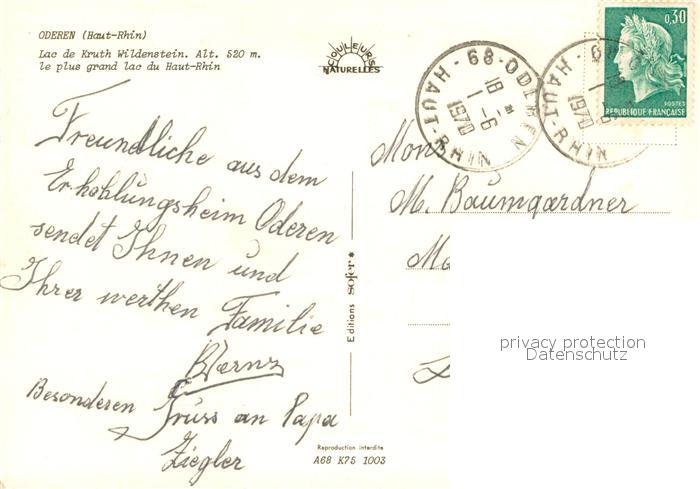 ODEREN (Haut-Rhin)
Lac de Kruth Wildenstein. Alt. 520 m.
le plus grand lac du Haut-Rhin
COULEURS
NATURELLES
68 - ODEREN
18 H
1 - 6
1970
HAUT-RHIN
0,30
POSTES
REPUBLIQUE FRANÇAISE
Freundliche aus dem
Erhohlungsheim Oderen
sendet Ihnen und
Ihrer werthen Familie
Besonderen Gruss an Papa
Ziegler
Mons
M. Baumgardner
Editions sofer
privacy protection
Datenschutz
Reproduction interdite
A68 K75 1003